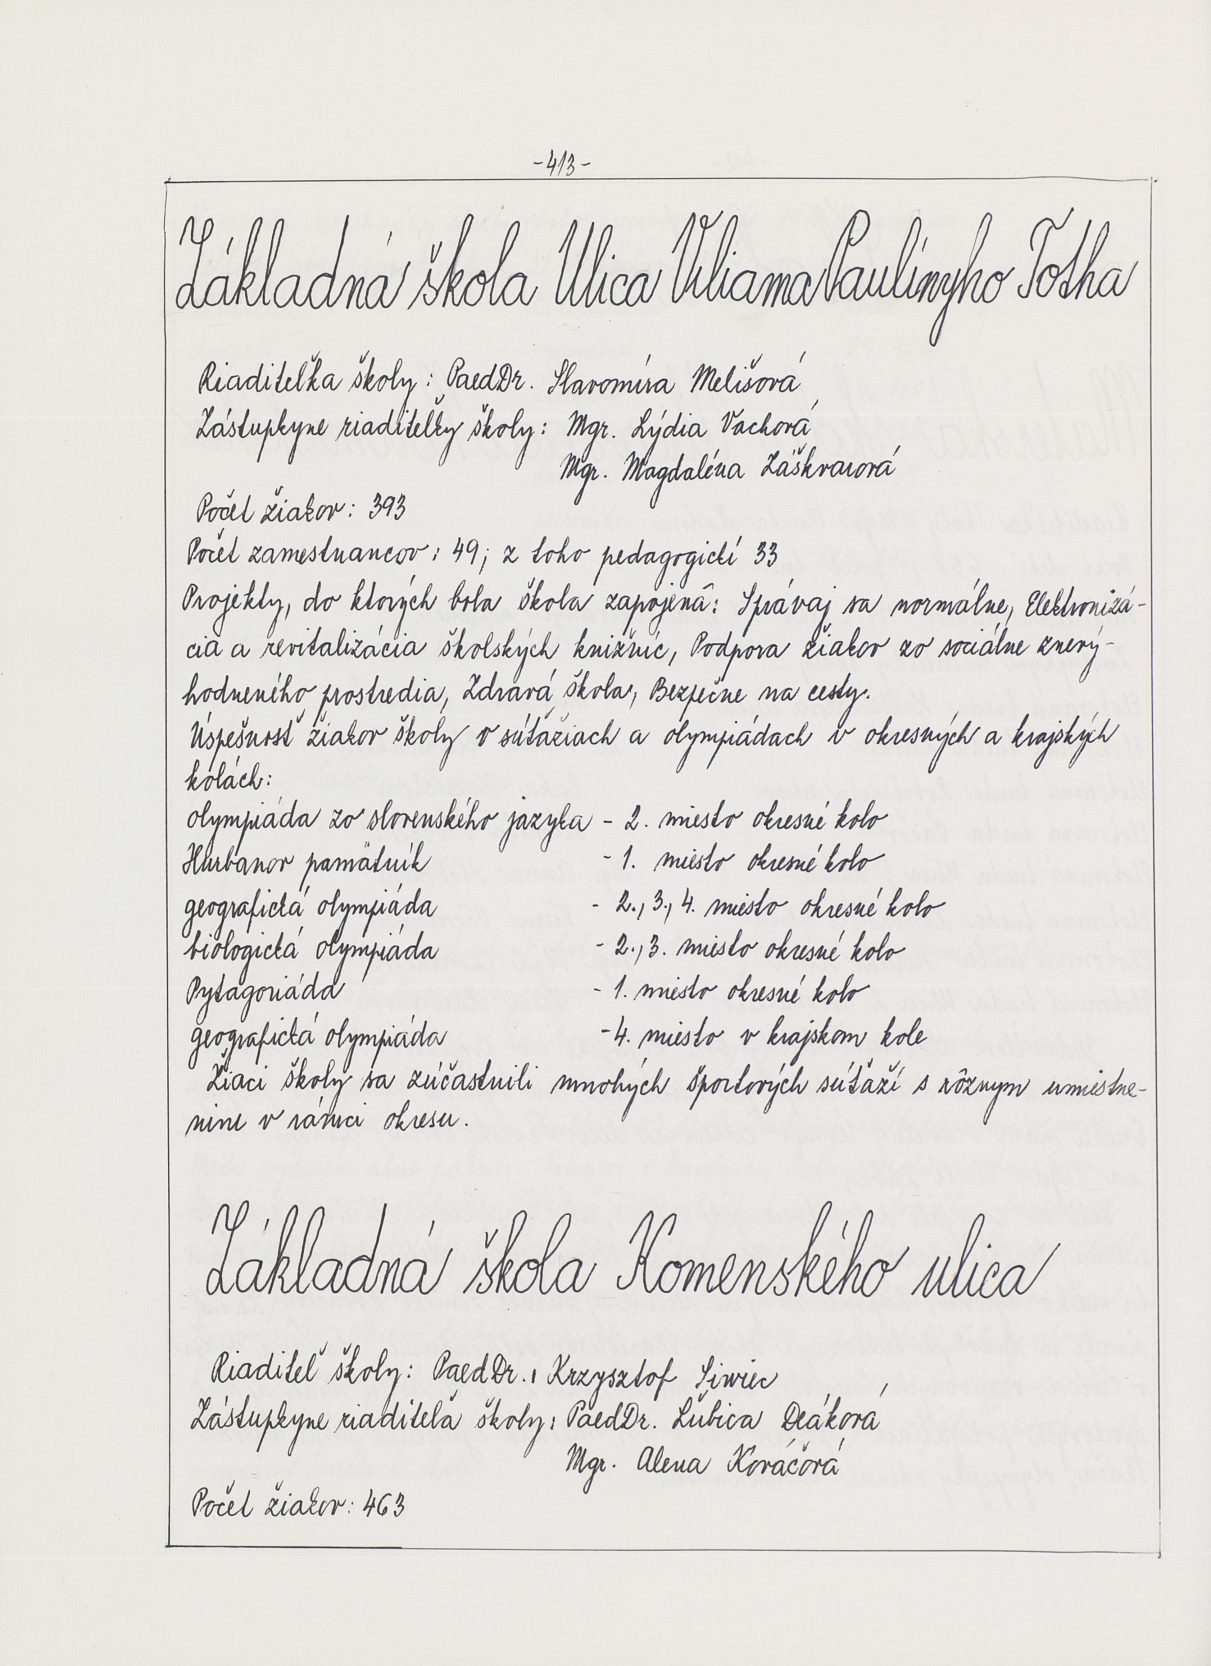 -413-
Základná škola Ulica Viliama Paulínyho Totha
Riaditeľka školy: PaedDr. Slavomíra Melišová
Zástupkyne riaditeľky školy: Mgr. Lýdia Vachová
Mgr. Magdaléna Záškvarová
Počet žiakov: 393
Počet zamestnancov: 49; z toho pedagogickí 33
Projekty, do ktorých bola škola zapojená: Správaj sa normálne, Elektronizá-
cia a revitalizácia školských knižníc, Podpora žiakov zo sociálne znevý-
hodneného prostredia, Zdravá škola, Bezpečne na cesty.
Úspešnosť žiakov školy v súťažiach a olympiádach v okresných a krajských
kolách:
olympiáda zo slovenského jazyka - 2. miesto okresné kolo
Hurbanov pamätník - 1. miesto okresné kolo
geografická olympiáda - 2., 3., 4. miesto okresné kolo
biologická olympiáda - 2., 3. miesto okresné kolo
Pytagoriáda - 1. miesto okresné kolo
geografická olympiáda - 4. miesto v krajskom kole
Žiaci školy sa zúčastnili mnohých športových súťaží s rôznym umiestne-
ním v rámci okresu.
Základná škola Komenského ulica
Riaditeľ školy: PaedDr., Krzysztof Siwiec
Zástupkyne riaditeľa školy: PaedDr. Ľubica Deáková
Mgr. Alena Kováčová
Počet žiakov: 463